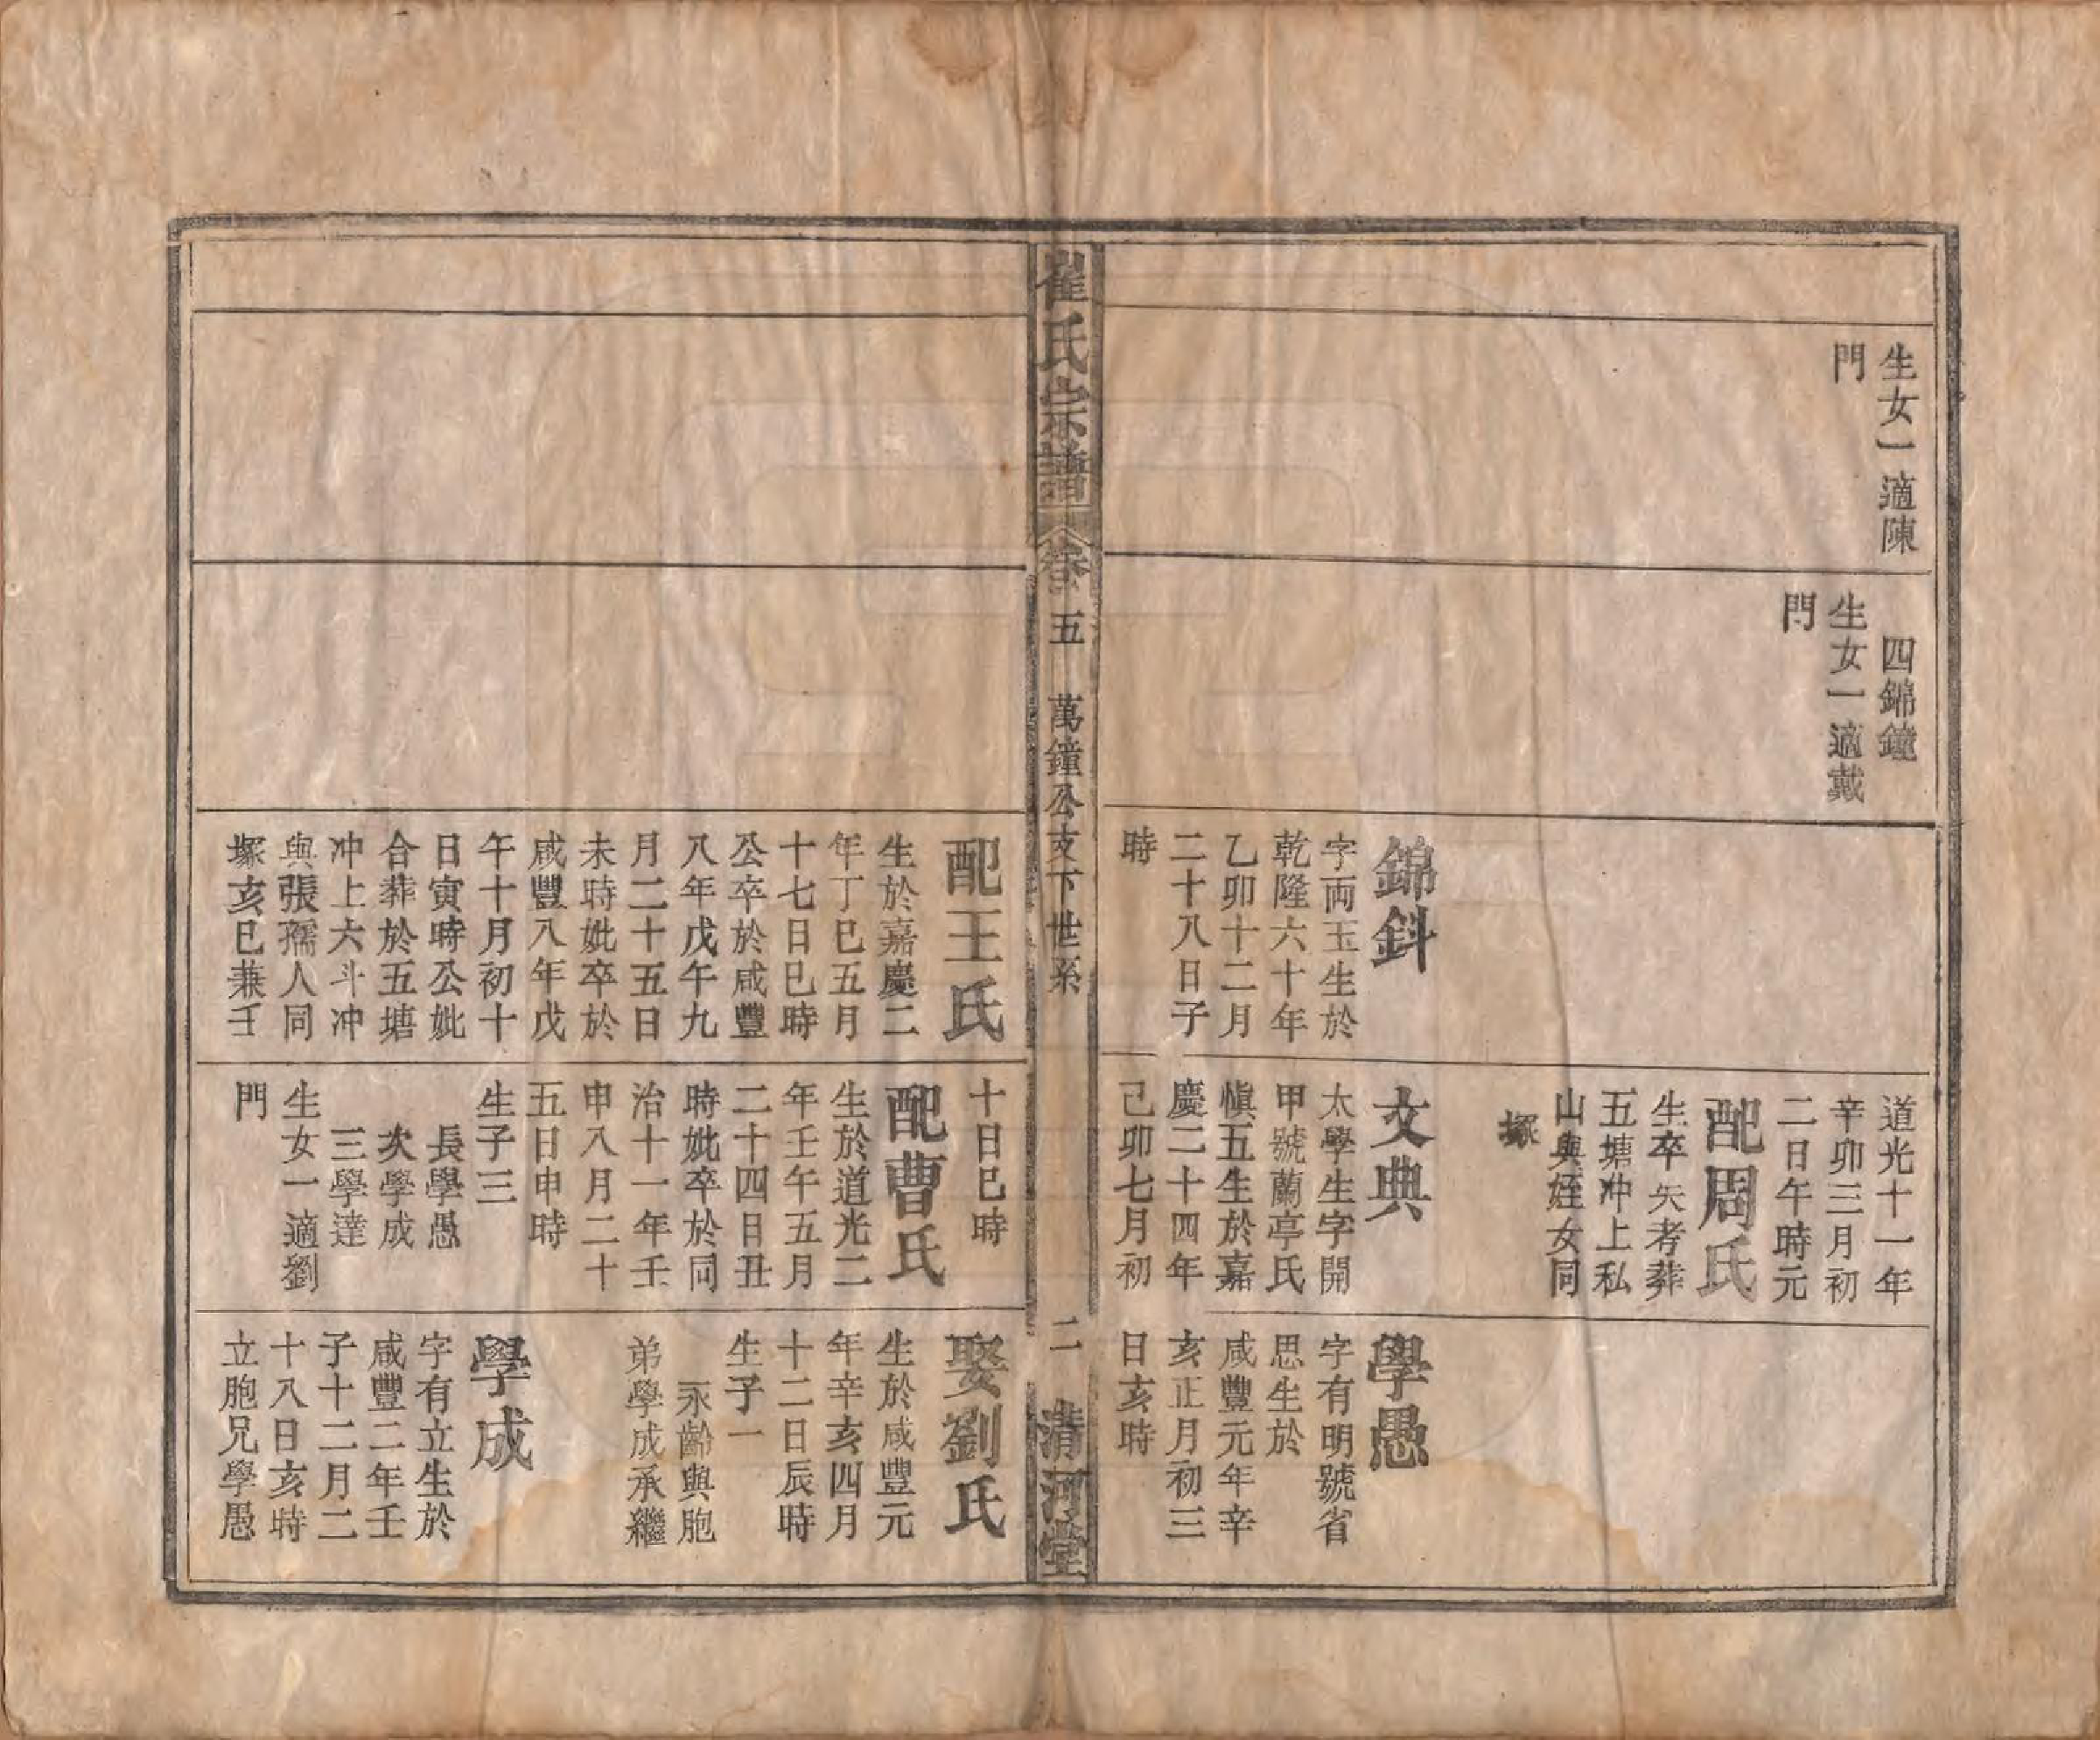 生女一適陳
門
四錦鐘
生女一適戴
門
錦鈄
字両玉生於
乾隆六十年
乙卯十二月
二十八日子
時
道光十一年
辛卯三月初
二日午時元
配周氏
生卒失考葬
五塘冲上私
山與姪女同
塚
文典
太學生字開
甲號蘭亭氏
愼五生於嘉
慶二十四年
己卯七月初
學愚
字有明號省
思生於
咸豐元年辛
亥正月初三
日亥時
崔氏宗譜
卷五
萬鐘公支下世系
二
清河堂
配王氏
生於嘉慶二
年丁巳五月
十七日巳時
公卒於咸豐
八年戊午九
月二十五日
未時妣卒於
咸豐八年戊
午十月初十
日寅時公妣
合葬於五塘
冲上六斗冲
與張孺人同
塚亥巳兼壬
十日巳時
配曹氏
生於道光二
年壬午五月
二十四日丑
時妣卒於同
治十一年壬
申八月二十
五日申時
生子三
長學愚
次學成
三學達
生女一適劉
門
娶劉氏
生於咸豐元
年辛亥四月
十二日辰時
生子一
永齡與胞
弟學成承繼
學成
字有立生於
咸豐二年壬
子十二月二
十八日亥時
立胞兄學愚